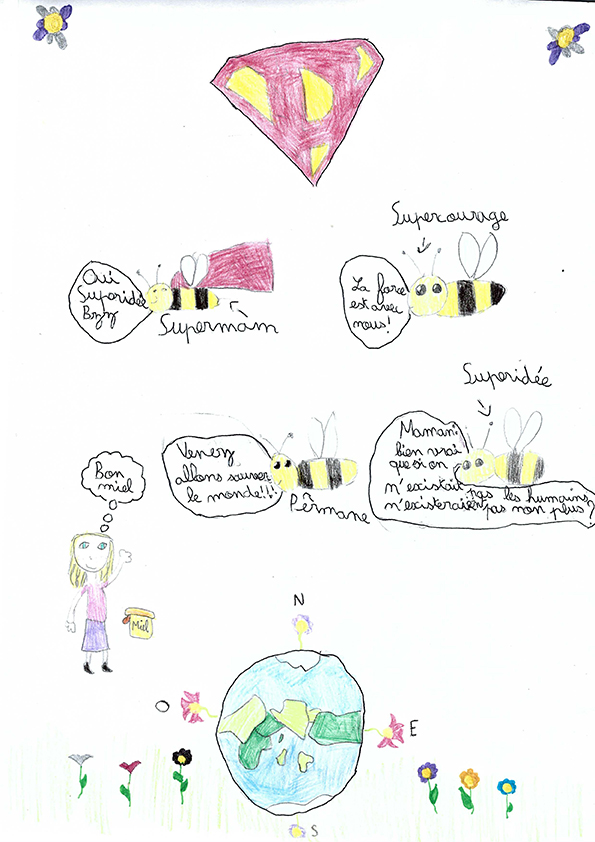 Supercourage
Oui
Superidée
Bzz
Supermam
La force
est avec
nous!
Superidée
Venez
allons sauver
le monde!!!
Pèrmane
Mamani
bien vrai
que si on
n'existait pas les humains
n'existeraient pas non plus?
Bon
miel
Miel
N
O
E
S